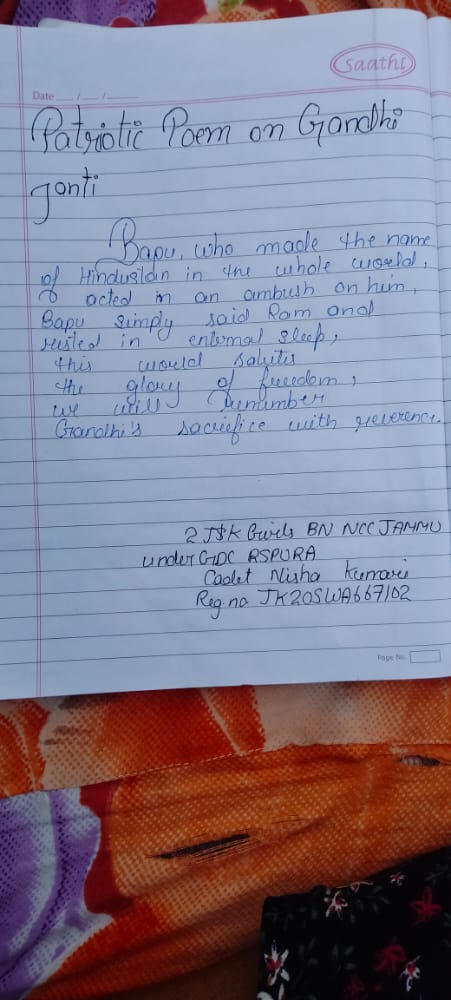 saathi
Date __/__/__
Patriotic Poem on Gandhi
Janti
Bapu, who made the name
of Hindustan in the whole world,
acted in an ambush on him,
Bapu simply said Ram and
rested in enternal sleep,
this would salutes
the glory of freedom,
we will remember
Gandhi's sacrifice with reverence.
2 J&K Girls BN NCC JAMMU
under GDC RSPURA
Cadet Nisha Kumari
Reg.no JK20SWA667102
Page No.